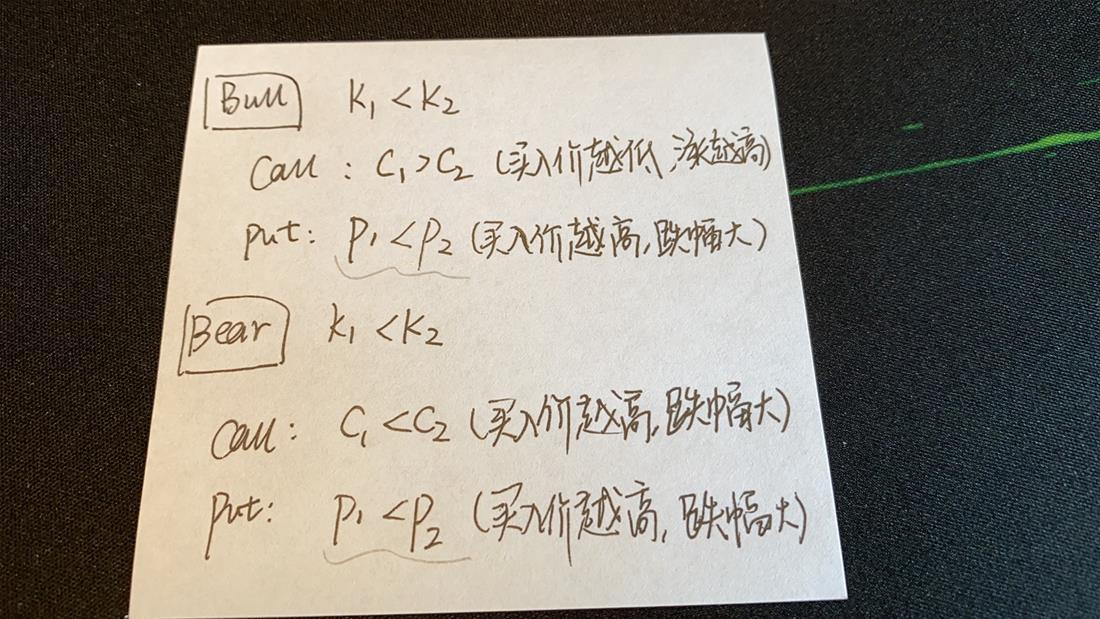 Bull K₁ < K₂
Call : C₁ > C₂ (买入价越低, 涨越高)
put: P₁ < P₂ (买入价越高, 跌幅大)
Bear K₁ < K₂
Call: C₁ < C₂ (买入价越高, 跌幅大)
Put: P₁ < P₂ (买入价越高, 跌幅大)